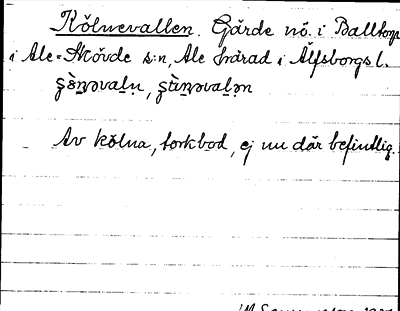 Kölnevallen. Gärde nö. i Balltorp
i Ale-Skövde s:n, Ale härad i Älfsborgs l.
Av kölna, torkbod, ej nu där befintlig.